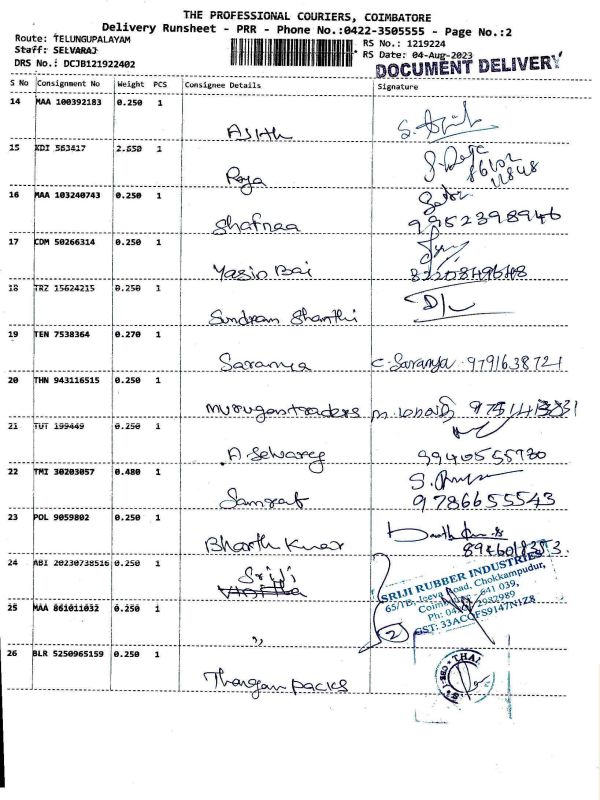 THE PROFESSIONAL COURIERS, COIMBATORE
Delivery Runsheet - PRR - Phone No.:0422-3505555 - Page No.:2
Route: TELUNGUPALAYAM
Staff: SELVARAJ
DRS No.: DCJB121922402
RS No.: 1219224
RS Date: 04-Aug-2023
DOCUMENT DELIVERY
S No Consignment No Weight PCS Consignee Details Signature
14 MAA 100392183 0.250 1
Ajith
15 KDI 563417 2.650 1
Roja
16 MAA 103240743 0.250 1
Shafnaa 9952398946
17 CDM 50266314 0.250 1
Yasin Bai
18 TRZ 15624215 0.250 1
Sundram Shanthi
19 TEN 7538364 0.270 1
Saranya C. Saranya 9791638721
20 THN 943116515 0.250 1
Murugantraders
21 TUT 199449 0.250 1
A Selvarej 9940555730
22 TMI 30203057 0.480 1
9786655543
23 POL 9059802 0.250 1
Bharth Kumar
24 ABI 20230738516 0.250 1
Sriji
SRIJI RUBBER INDUSTRIES
65/1B, Jeeva Road, Chokkampudur,
Coimbatore - 641 039,
Ph: 0422 - 2982989
GST: 33ACQFS9147N1Z8
25 MAA 861011032 0.250 1
,,
2
26 BLR 5250965159 0.250 1
Thangam packs
THAI
CBE